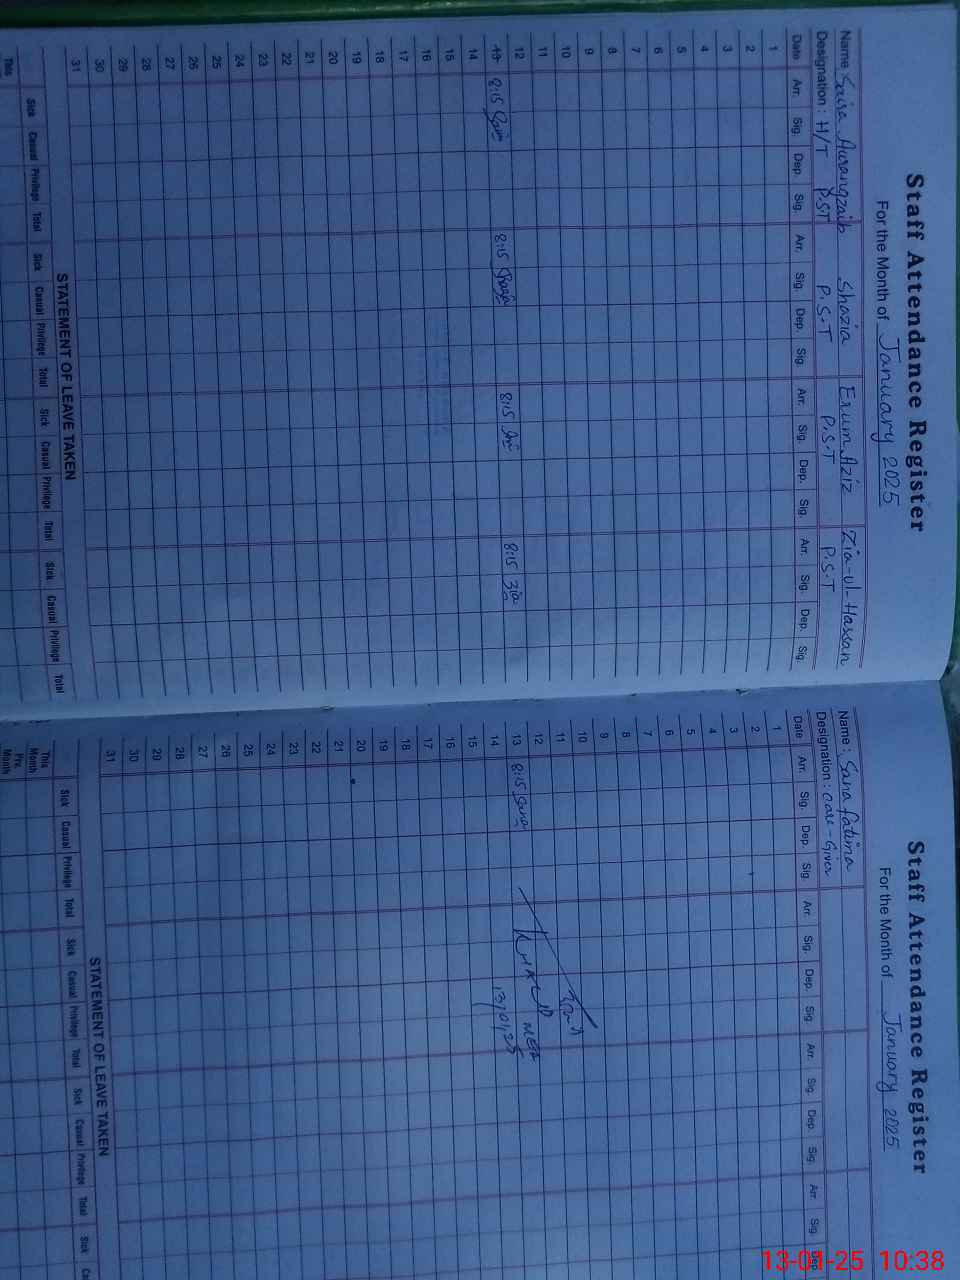 Staff Attendance Register
For the Month of January 2025
Name Saira Aurangzaib Shazia Erum Aziz Zia-ul-Hassan
Designation : H/T P.S.T P.S.T P.S.T P.S.T
Date Arr. Sig. Dep. Sig. Arr. Sig. Dep. Sig. Arr. Sig. Dep. Sig. Arr. Sig. Dep. Sig.
1
2
3
4
5
6
7
8
9
10
11
12
13 8:15 8:15 8:15 8:15 Zia
14
15
16
17
18
19
20
21
22
23
24
25
26
27
28
29
30
31
STATEMENT OF LEAVE TAKEN
Sick Casual Privilege Total Sick Casual Privilege Total Sick Casual Privilege Total Sick Casual Privilege Total
This
Staff Attendance Register
For the Month of January 2025
Name : Sana Fatima
Designation : Care-Giver
Date Arr. Sig. Dep. Sig. Arr. Sig. Dep. Sig. Arr. Sig. Dep. Sig. Arr. Sig. Dep.
1
2
3
4
5
6
7
8
9
10
11
12
13 8:15 Sana
14 13/01/25
15
16
17
18
19
20
21
22
23
24
25
26
27
28
29
30
31
STATEMENT OF LEAVE TAKEN
Sick Casual Privilege Total Sick Casual Privilege Total Sick Casual Privilege Total Sick
This Month
Prv. Month
13-01-25 10:38